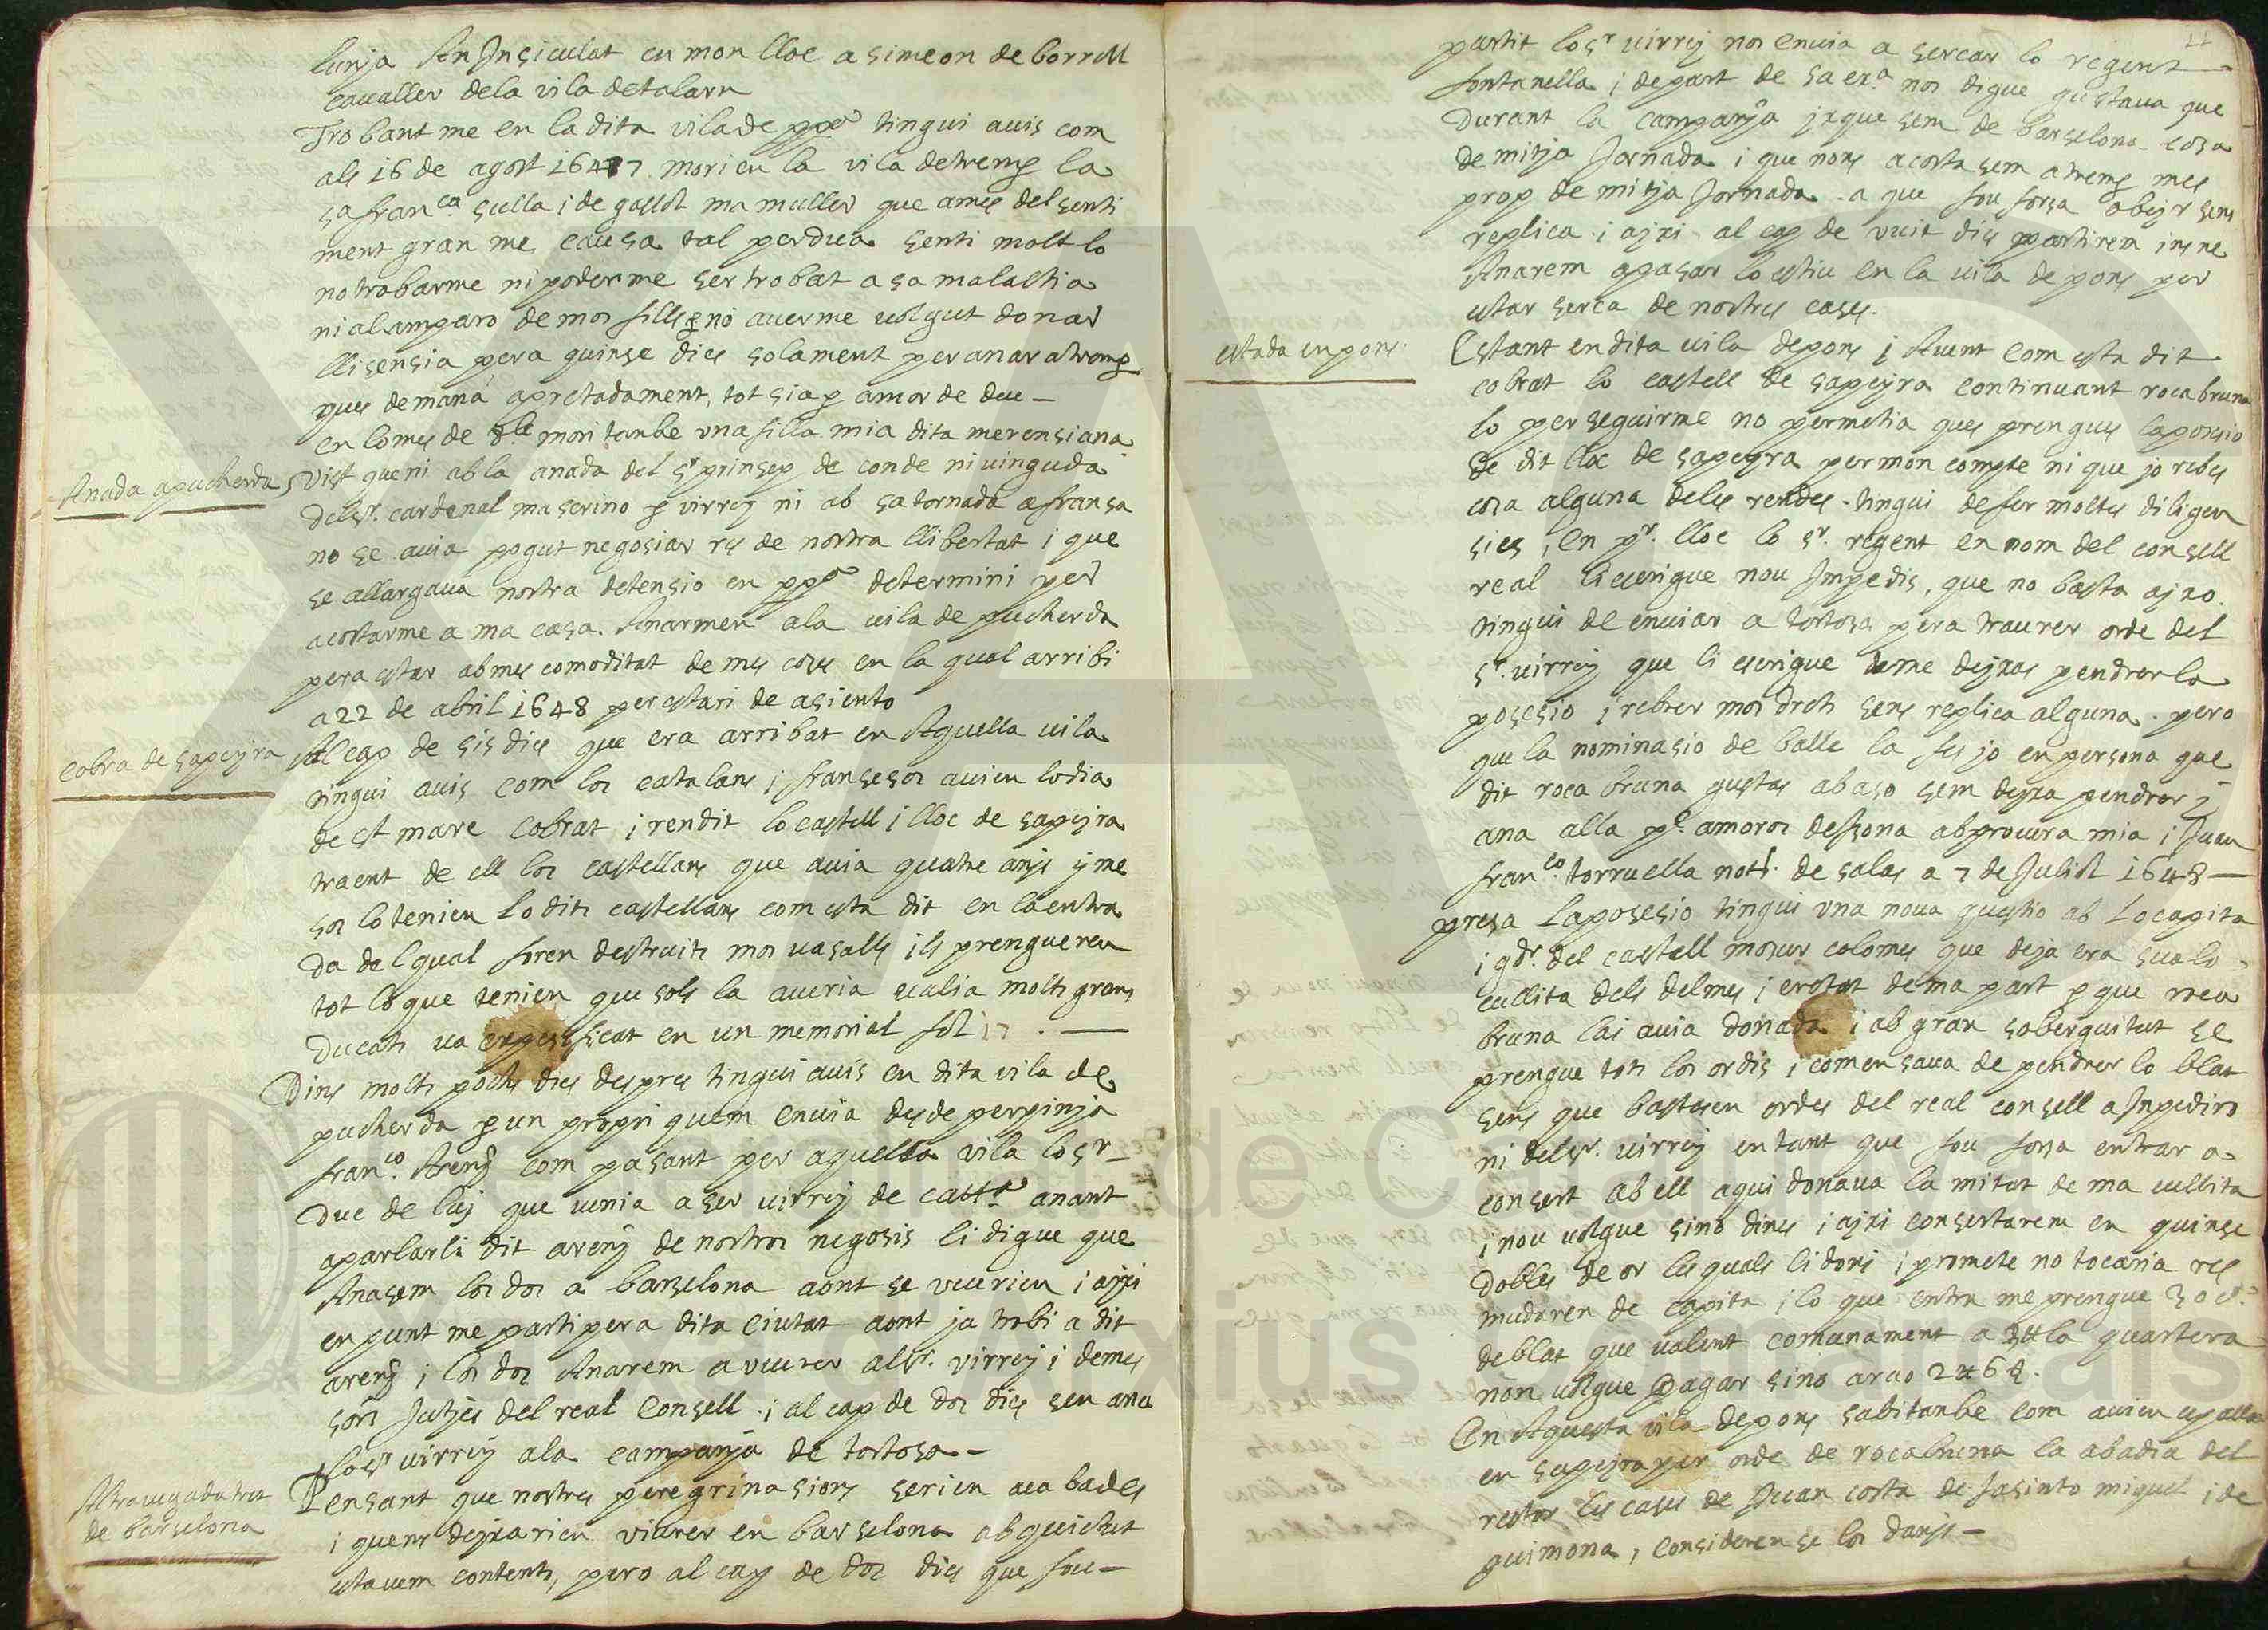 lunja An Insiculat en mon lloc a simeon de borrell
cavaller dela vila detalarn
Trobant me en la dita vila de ppa tingui avis com
als 16 de agost 1647 mori en la vila detremp la
sa franca sulla i de gassol ma muller que ames del senti
ment gran me causa tal perdua senti molt lo
notrobarme ni poderme ser trobat a sa malaltia
ni al amparo de mos fills p no averme volgut donar
llisensia pera quinse dies solament per anar a tremp
ques demana apretadament, tot sia p amor de deu —
en lo mes de 8bre mori tanbe una filla mia dita merensiana
Anada apucherda
Vist que ni abla anada del sr prinsep de conde ni vinguda
delsr. cardenal maserino p virrey ni ab sa tornada a fransa
no se avia pogut negosiar res de nostra llibertat i que
se allargava nostra detensio en ppa determini per
acostarme a ma casa. Anarmen ala vila de pucherda
pera estar abmes comoditat de mes coses en la qual arribi
a 22 de abril 1648 per estari de asiento
Cobra de sapeyra
Al cap de sis dies que era arribat en Aquella vila
tingui avis com los catalans i fransesos avien lo dia
de st marc cobrat i rendit lo castell i lloc de sapeyra
traent de ell los castellans que avia quatre anys y me
sos lo tenien Lo dits castellans com esta dit en la entra
da del qual foren destruits mos vasalls ils prengueren
tot lo que tenien que sols la averia valia molts grans
Ducats va espessificat en un memorial fol 17 . —
Dins molts pochs dies despres tingui avis en dita vila de
pucherda p un propri quem envia desde perpinja
franco. Areny com pasant per aquella vila lo sr
Duc de luy que venia a ser virrey de catta. anant
aparlarli dit areny de nostros negosis li digue que
Anasem los dos a barselona aont se veurien i axi
en punt me parti pera dita Ciutat aont ja trobi a dit
areny i los dos Anarem a veurer alsr. virrey i demes
sors Jutjes del real Consell . i al cap de dos dies sen ana
lo sr virrey ala campanja de tortosa —
Altra vegada tret
de barselona
Pensant que nostres peregrinasions serien acabades
i quens deyxarien viurer en barselona ab quietut
estavem contents, pero al cap de dos dies que fou —
11
partit lo sr virrey nos envia a sercar lo regent
fontanella i de part de sa exa. nos digue gustava que
Durant la campanja ixquesem de barselona cosa
de mitja Jornada i que nons acostasem a tremp mes
prop de mitja Jornada . a que fou forsa obeyr sens
replica i axi al cap de vuit dies partirem ins ne
Anarem apasar lo estiu en la vila de pons per
estar serca de nostres cases.
estada en pons.
Estant en dita vila depons i Avent Com esta dit
cobrat lo castell de sapeyra continuant rocabruna
lo perseguirme no permetia ques prengues laposesio
de dit lloc de sapeyra per mon compte ni que jo rebes
cosa alguna deles rendes . tingui de fer moltes diligen
sies , En pr. lloc lo sr. regent en nom del consell
real li escrigue nou Impedis, que no basta axo.
tingui de enviar a tortosa pera traurer orde del
sr. virrey que li escrigue me deyxas pendrer la
posesio i rebrer mos drets sens replica alguna . pero
que la nominasio de balle la fes jo en persona que
dit roca bruna gustas ab aso sem deyxa pendrer y
ana alla pe. amoros desona ab procura mia i Juan
franco. torruella nott. de salas a 7 de Juliol 1648 —
presa Laposesio tingui una nova questio ab Lo capita
i gdr. del castell mosur colomes que deya era sua lo
cullita dels delmes i eretat de ma part p que roca
bruna lai avia donada i ab gran soberguitut se
prengue tots los ordis i comensava de pendrer lo blat
sens que bastasen ordes del real consell a Inpediro
ni delsr. virrey en tant que fou forsa entrar a
consert ab ell aqui donava la mitat de ma cullita
i nou volgue sino dines i axi consertarem en quinse
dobles de or les quals li doni i promete no tocaria res
mudaren de capita i lo que entra me prengue 30 q.s
deblat que valent comunament a la quartera
non volgue pagar sino arao 2 ll 6 s.
En Aquesta vila depons sabi tanbe com avien espallat
en sapeyra per orde de rocabruna la abadia del
rector les cases de Juan costa de Jasinto miquel i de
guimona, considerense los danys —